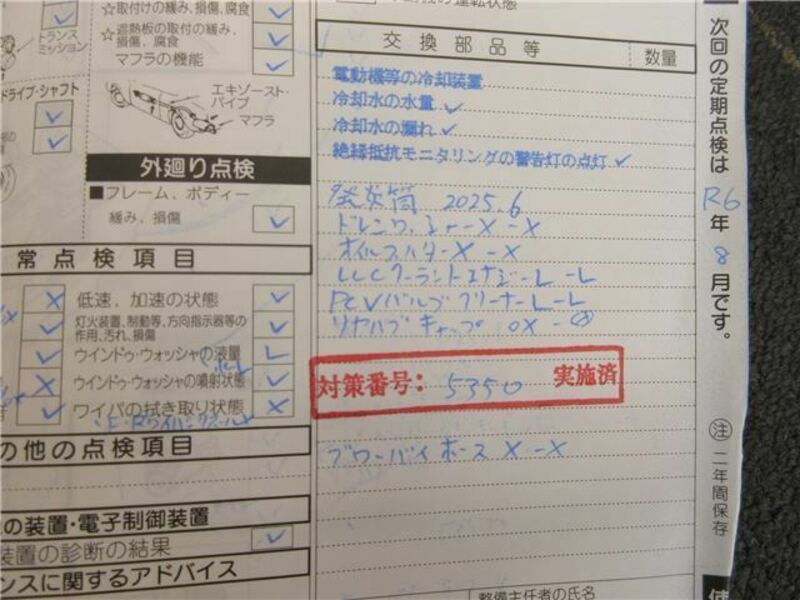 ☆取付けの緩み、損傷、腐食
☆遮熱板の取付の緩み、
損傷、腐食
マフラの機能
トランス
ミッション
ドライブ・シャフト
エキゾースト・
パイプ
マフラ
外廻り点検
■フレーム、ボディー
緩み、損傷
常点検項目
低速、加速の状態
灯火装置、制動等、方向指示器等の
作用、汚れ、損傷
ウインドゥ・ウォッシャの液量
ウインドゥ・ウォッシャの噴射状態
ワイパの拭き取り状態
の他の点検項目
の装置・電子制御装置
装置の診断の結果
ンスに関するアドバイス
の運転状態
交換部品等
数量
電動機等の冷却装置
冷却水の水量 ✓
冷却水の漏れ ✓
絶縁抵抗モニタリングの警告灯の点灯 ✓
発炎筒 2025.6
ドレンワッシャーX-X
オイルフィルターX-X
LLCクーラント L-L
PCVバルブクリーナーL-L
リヤハブキャップ
対策番号: 5350 実施済
X-X
整備主任者の氏名
次回の定期点検は
R6年
8月です。
注 二年間保存
使